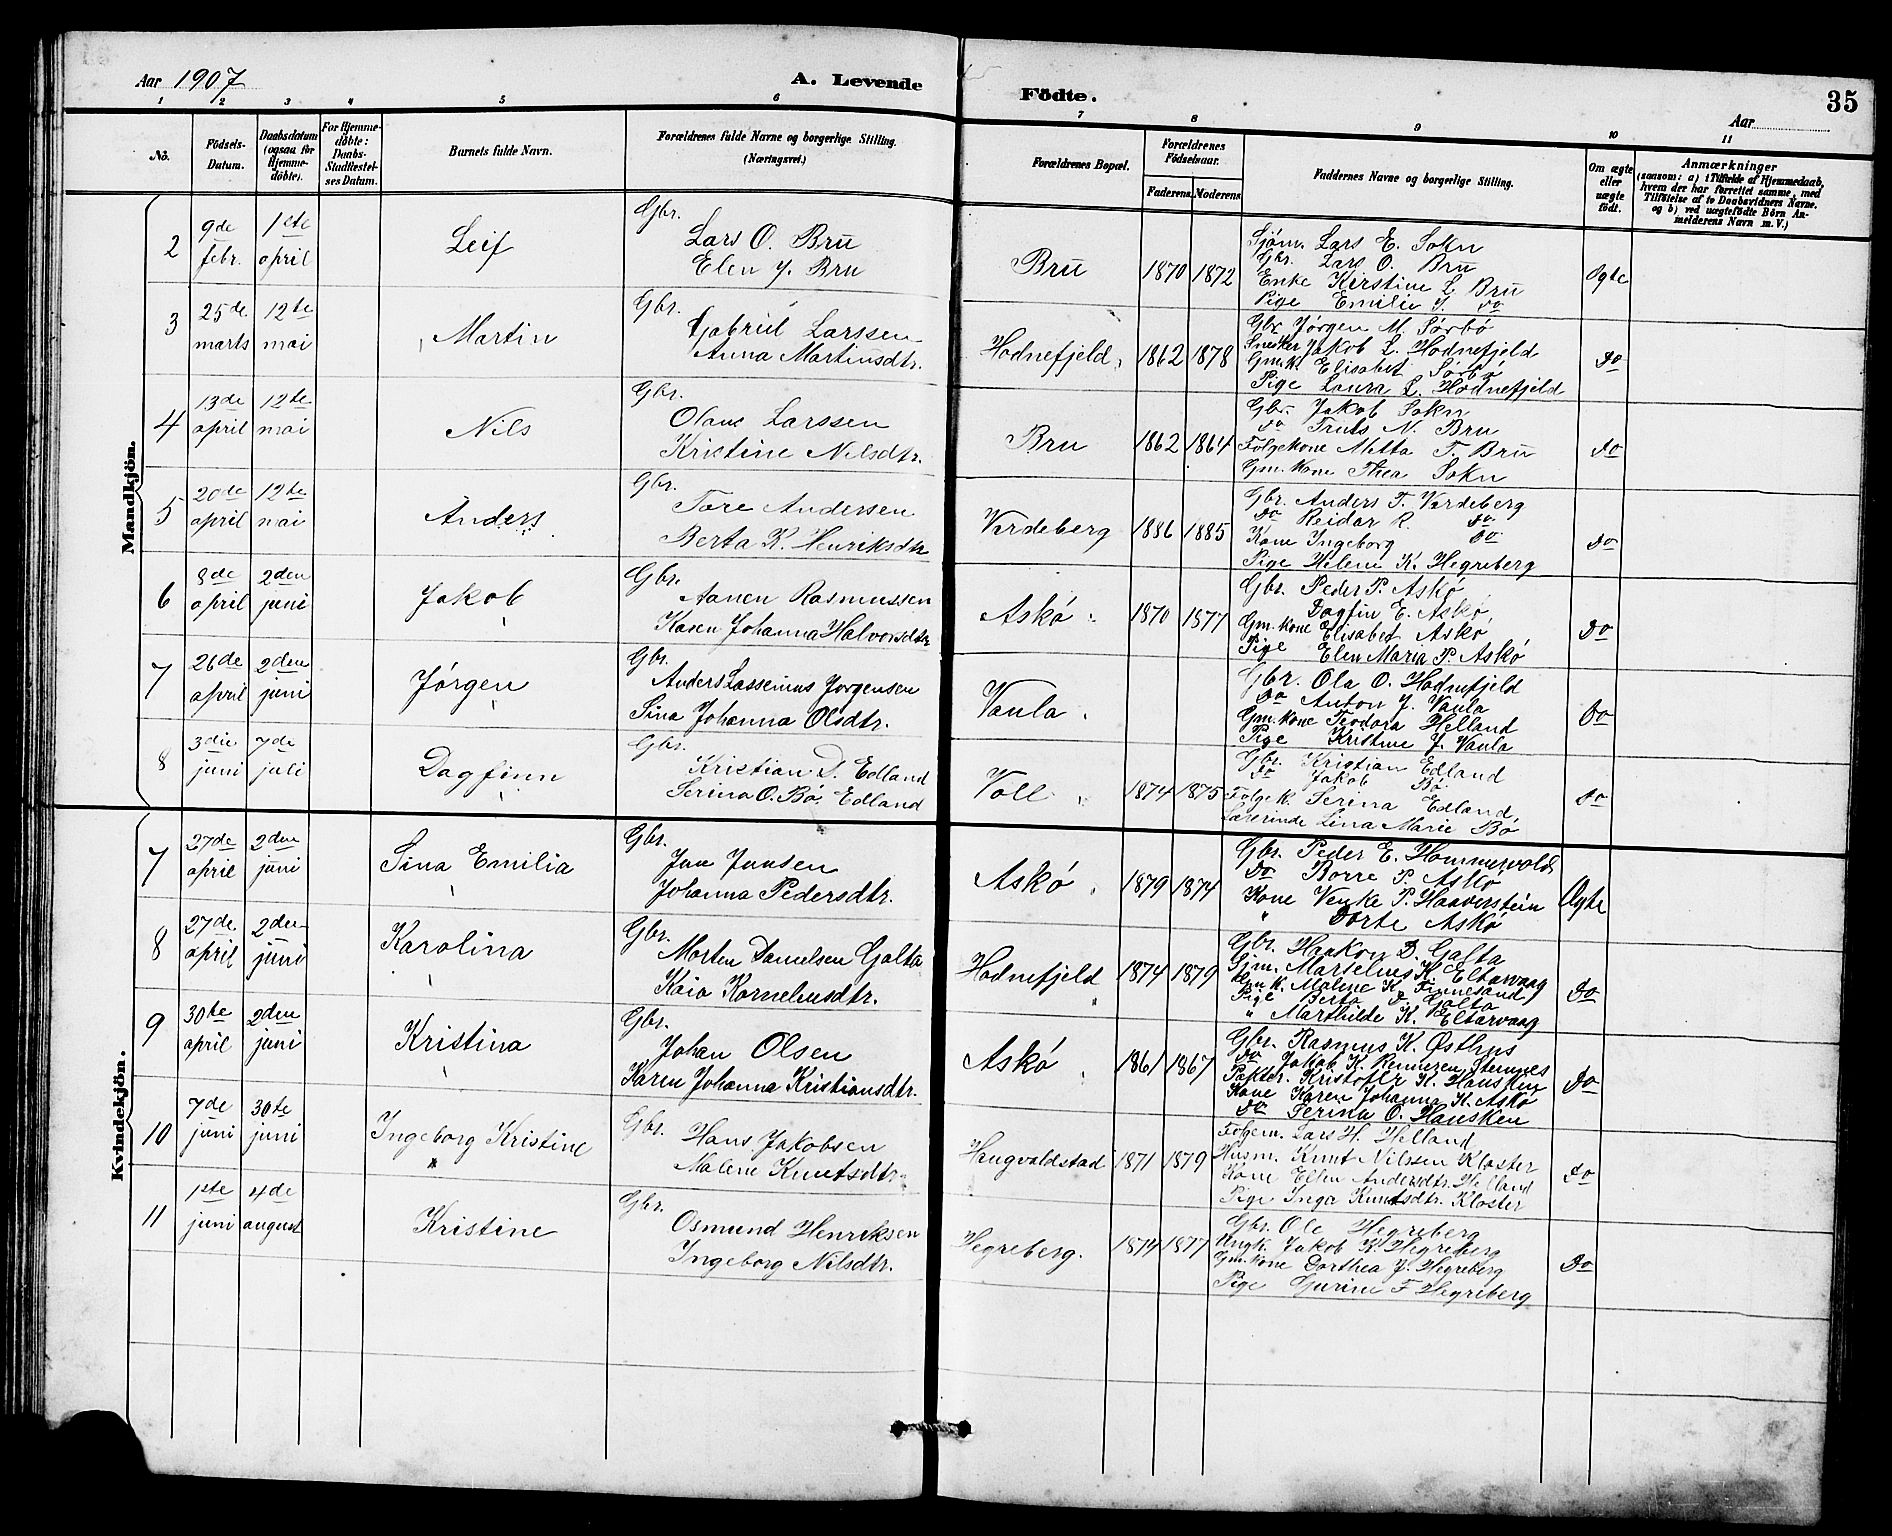 Aar 1907
A. Levende Födte.
Aar
35
1 2 3 4 5 6 7 8 9 10 11
No.
Födsels-Datum.
Daabsdatum (ogsaa for Hjemme-döbte).
For Hjemme-döbte: Daabs-Stadfæstel-ses Datum.
Barnets fulde Navn.
Forældrenes fulde Navne og borgerlige Stilling. (Næringsvei.)
Forældrenes Bopæl.
Forældrenes Födselsaar.
Faderens. Moderens.
Faddernes Navne og borgerlige Stilling.
Om ægte eller uægte födt.
Anmærkninger
(saasom: a) i Tilfælde af Hjemmedaab, hvem der har forrettet samme, med Tilföielse af to Daabsvidners Navne. og b) ved uægtefödte Börn An-melderens Navn m. V.)
Mandkjön.
2 9de febr. 1ste april Leif Gbr. Lars O. Bru Elen J. Bru Bru 1870 1872 Sjøm. Lars E. Sokn
Gbr. Lars O. Bru
Enke Kirstine L Bru
Pige Emilie J. do
Ægte
3 25de marts 12te mai Martin Gbr. Gabriel Larssen Anna Martinsdtr. Hodnefjeld 1862 1878 Gbr. Jørgen M. Sørbø
Snedker Jakob L. Hodnefjeld
Gm.k. Elisabet Sørbø
Pige Laura L. Hodnefjeld
do
4 13de april 12te mai Nils Gbr. Olaus Larssen Kristine Nilsdtr. Bru 1862 1864 Gbr. Jakob Sokn
do Truls N. Bru
Følgekone Metta T. Bru
Gm. kone Thea Sokn
do
5 20de april 12te mai Anders Gbr. Tore Andersen Berta K. Henriksdtr Vordeberg 1886 1885 Gbr. Anders T. Vordeberg
do Reidar R. do
Kone Ingeborg do
Pige Helene K. Hegreberg
do
6 8de april 2den juni Jakob Gbr. Aanen Rasmussen Karen Johanna Halvorsdtr Askø 1870 1877 Gbr. Peder P. Askø
Dagfin E. Askø
Gm. kone Elisabet Askø
Pige Elen Maria P. Askø
do
7 26de april 2den juni Jørgen Gbr. Anders Lassenius Jørgensen Sina Johanna Olsdtr. Vaula Gbr. Ola O. Hodnefjeld
do Anton J. Vaula
Gm. kone Teodora Helland
Pige Kristine J. Vaula
do
8 3die juni 7de juli Dagfinn Gbr. Kristian D. Edland Serina O. Bø Edland Voll 1874 1875 Gbr. Kristian Edland
do Jakob Bø
Følgek. Serina Edland
Lærerinde Lina Marie Bø
do
Kvindekjön.
7 27de april 2den juni Sina Emilia Gbr. Jan Jansen Johanna Pedersdtr. Askø 1879 1874 Gbr. Peder E. Hommersvold
do Børre P. Askø
Kone Venke P. Haaverstein
" Dorte Askø
Ægte
8 27de april 2den juni Karolina Gbr. Morten Danielsen Galta Kaia Korneliusdtr. Hodnefjeld 1874 1879 Gbr. Haakon D. Galta
Marselius K. Eltarvaag
Malene K. Finnesand
Pige Berta D. Galta
" Marthilde K. Eltarvaag
do
9 30te april 2den juni Kristina Gbr. Johan Olsen Karen Johanna Kristiansdtr. Askø 1861 1867 Gbr. Rasmus K. Østhus
do Jakob K. Renneren Stemnes
Pakter. Kristofer K. Hausken
Kone Karen Johanna K. Askø
do Serina O. Hausken
do
10 7de juni 30te juni Ingeborg Kristine Gbr. Hans Jakobsen Malene Knutsdtr. Haugvaldstad 1871 1879 Følgem. Lars H. Helland
Husm. Knut Nilssen Kloster
Kone Ellen Andersdtr. Helland
Pige Inga Knutsdtr. Kloster
do
11 1ste juni 4de august Kristine Gbr. Osmund Henriksen Ingeborg Nilsdtr. Hegreberg. 1874 1877 Gbr. Ole Hegreberg
Ungk. Jakob K. Hegreberg
Gm. kone Dorthea J. Hegreberg
Pige Gurine F. Hegreberg
do